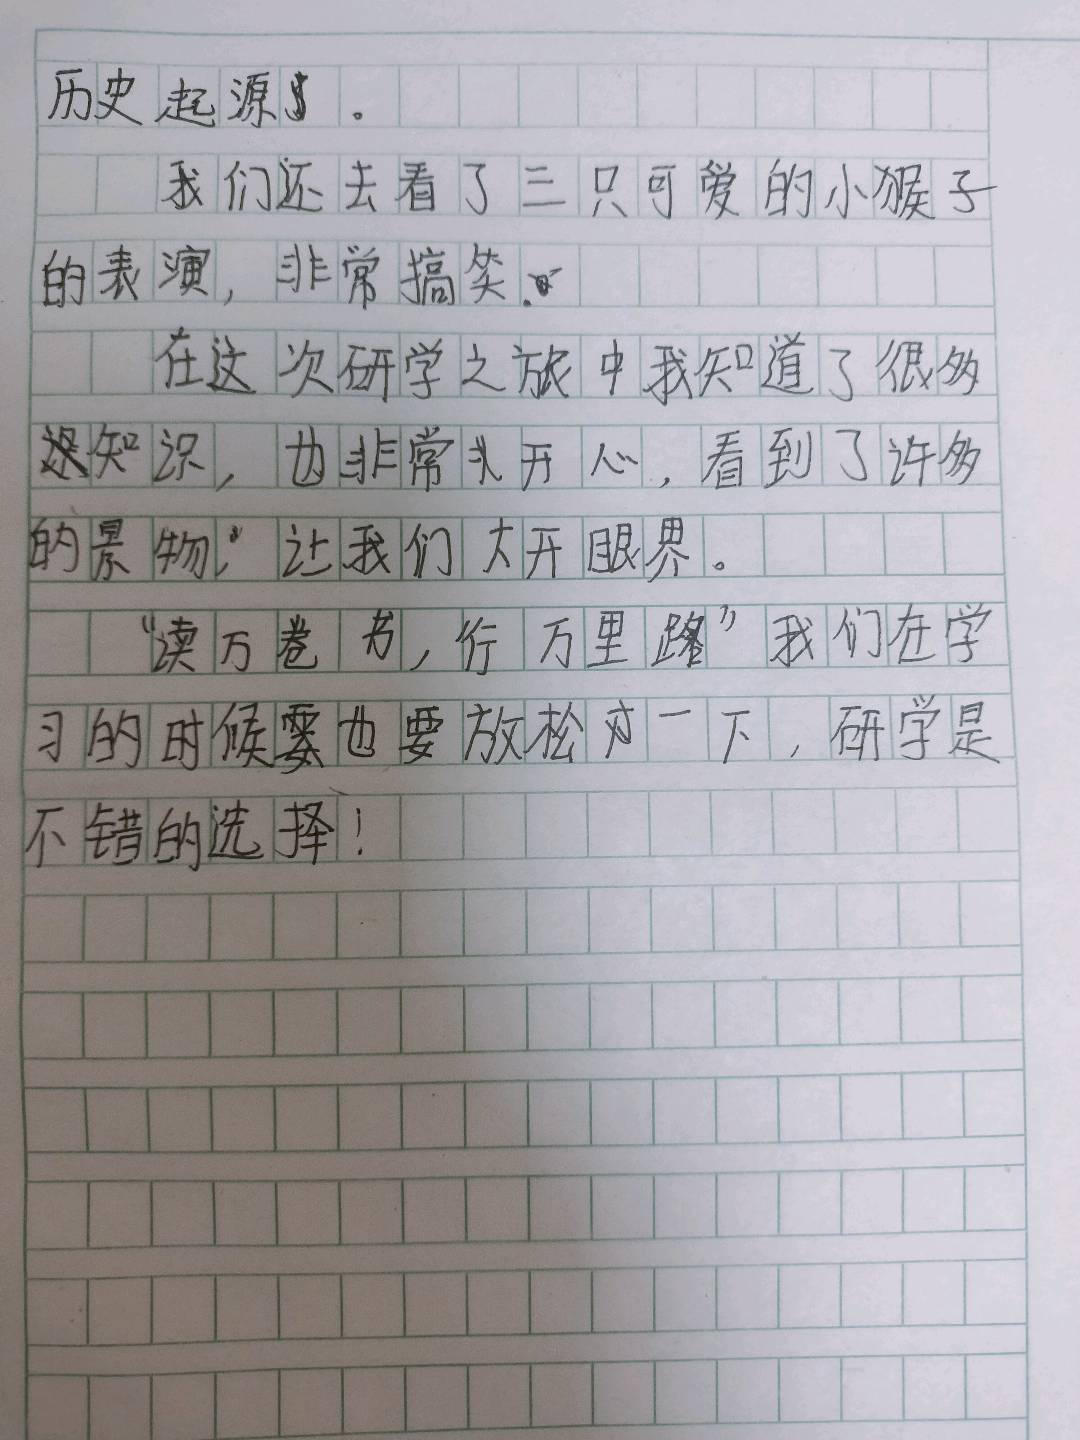 历史起源。
我们还去看了三只可爱的小猴子
的表演，非常搞笑。
在这次研学之旅中我知道了很多
知识，也非常开心，看到了许多
的景物，让我们大开眼界。
“读万卷书，行万里路”我们在学
习的时候也要放松一下，研学是
不错的选择！